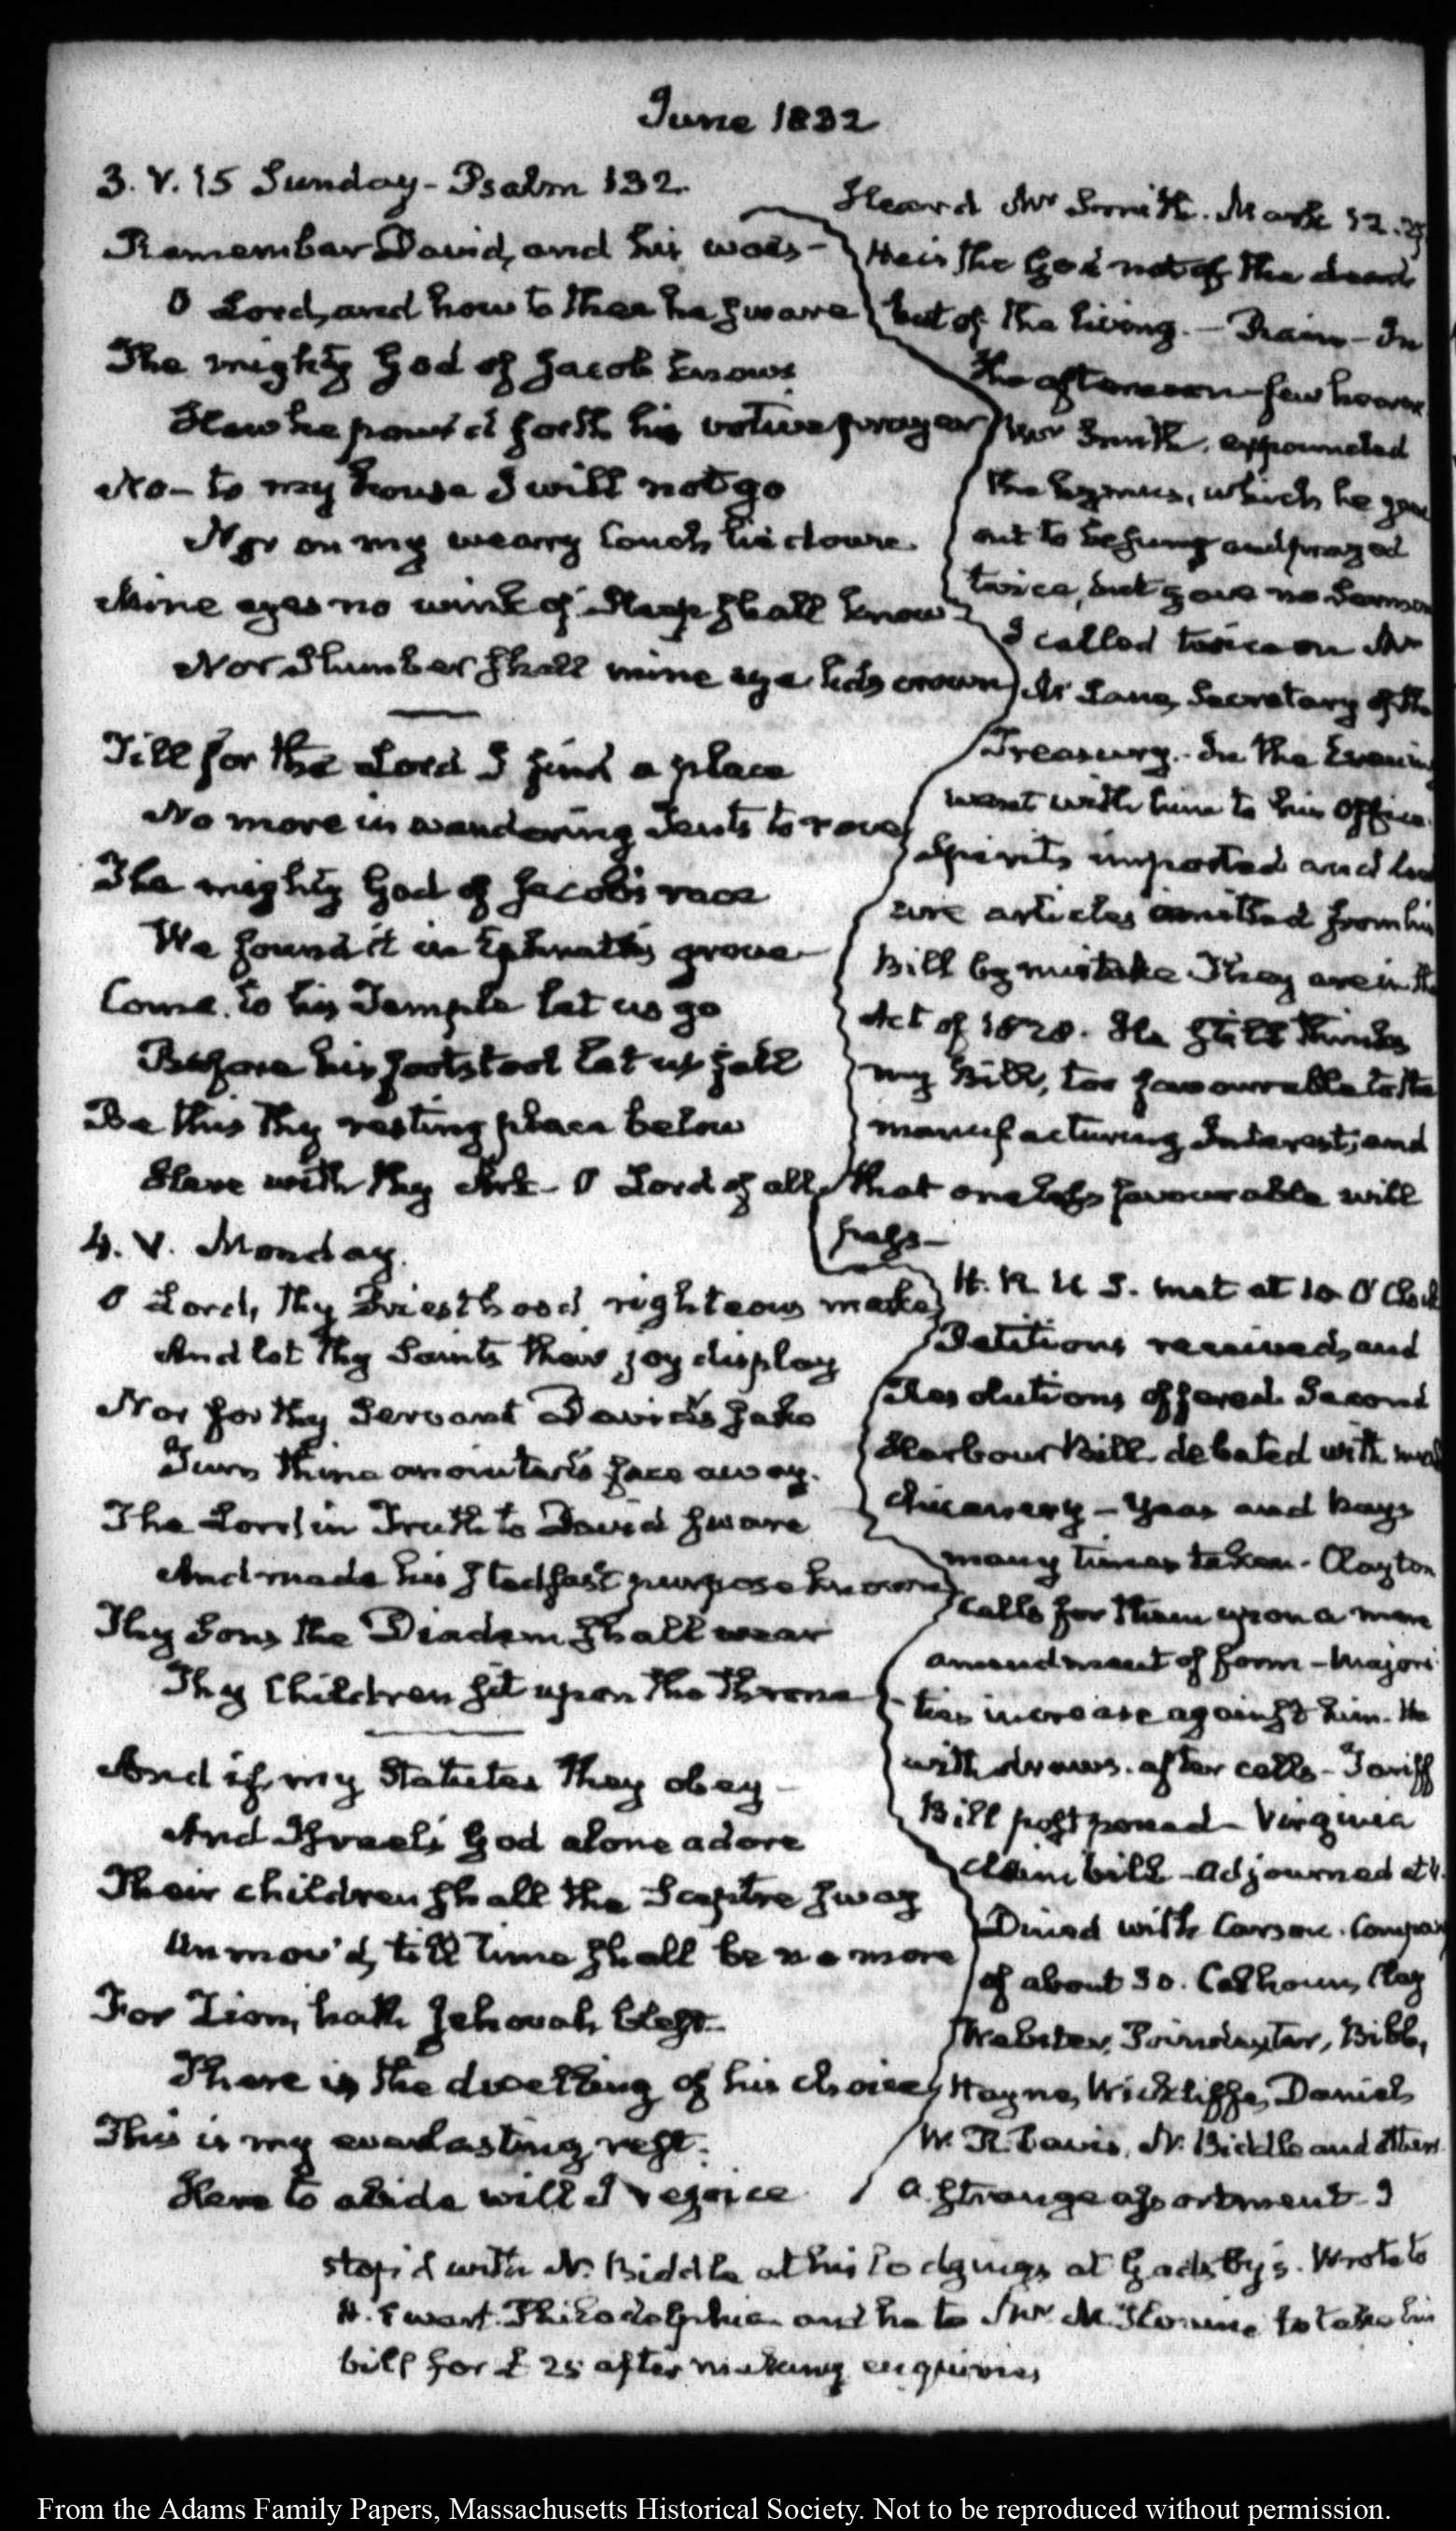 June 1832
3. V. 15 Sunday - Psalm 132.
Remember David, and his woes -
O Lord, and how to thee he sware
The mighty God of Jacob knows
How he pour'd forth his votive prayer
No - to my house I will not go
Nor on my weary Couch lie down.
Mine eyes no wink of Sleep shall know
Nor Slumber shall mine eye lids crown
Till for the Lord I find a place
No more in wandering Tents to rove
The mighty God of Jacob's race
We found it in Ephrata's grove
Come, to his Temple let us go
Before his footstool let us fall
Be this thy resting place below
Here with thy Ark - O Lord of all
Heard Mr Smith. Mark 12.27
He is the God not of the dead
but of the living. - Rain - In
the afternoon few hearers
Mr Smith, expounded
the hymns, which he gave
out to be sung and prayed
twice, but gave no Sermon
I called twice on Mr
Mc Lane, Secretary of the
Treasury. In the Evening
went with him to his Office.
Spirits imported and
are articles omitted from his
Bill by mistake They are in the
Act of 1828. He still thinks
my Bill, too favourable to the
manufacturing Interest; and
that one less favourable will
pass -
4. V. Monday.
O Lord, thy Priesthood righteous make
And let thy Saints their joy display
Nor for thy Servant David's sake
Turn thine anointed's face away.
The Lord in Truth to David sware
And made his stedfast purpose known
Thy Sons the Diadem shall wear
Thy Children sit upon the Throne
And if my Statutes they obey -
And Israel's God alone adore
Their children shall the Sceptre sway
Unmov'd, till time shall be no more
For Zion, hath Jehovah blest
There is the dwelling of his choice
This is my everlasting rest.
Here to abide will I rejoice
H. R. U S. met at 10 O'Clock
Petitions received, and
Resolutions offered. Second
Harbour Bill debated with much
chicanery - Yeas and Nays
many times taken. Clayton
calls for them upon a mere
amendment of form - Majori
ties increase against him. He
withdraws. after calls - Tariff
Bill postponed - Virginia
claim bill - adjourned at 4.
Dined with Carson. Company
of about 30. Calhoun, Clay
Webster, Poindexter, Bibb,
Hayne, Wickliffe, Daniel,
W. R. Davis, N. Biddle and others
A strange assortment - I
stop'd with N. Biddle at his lodgings at Gadsby's. Wrote to
H. Ewart Philadelphia and he to Mr to take his
bill for £ 25 after making enquiries
From the Adams Family Papers, Massachusetts Historical Society. Not to be reproduced without permission.